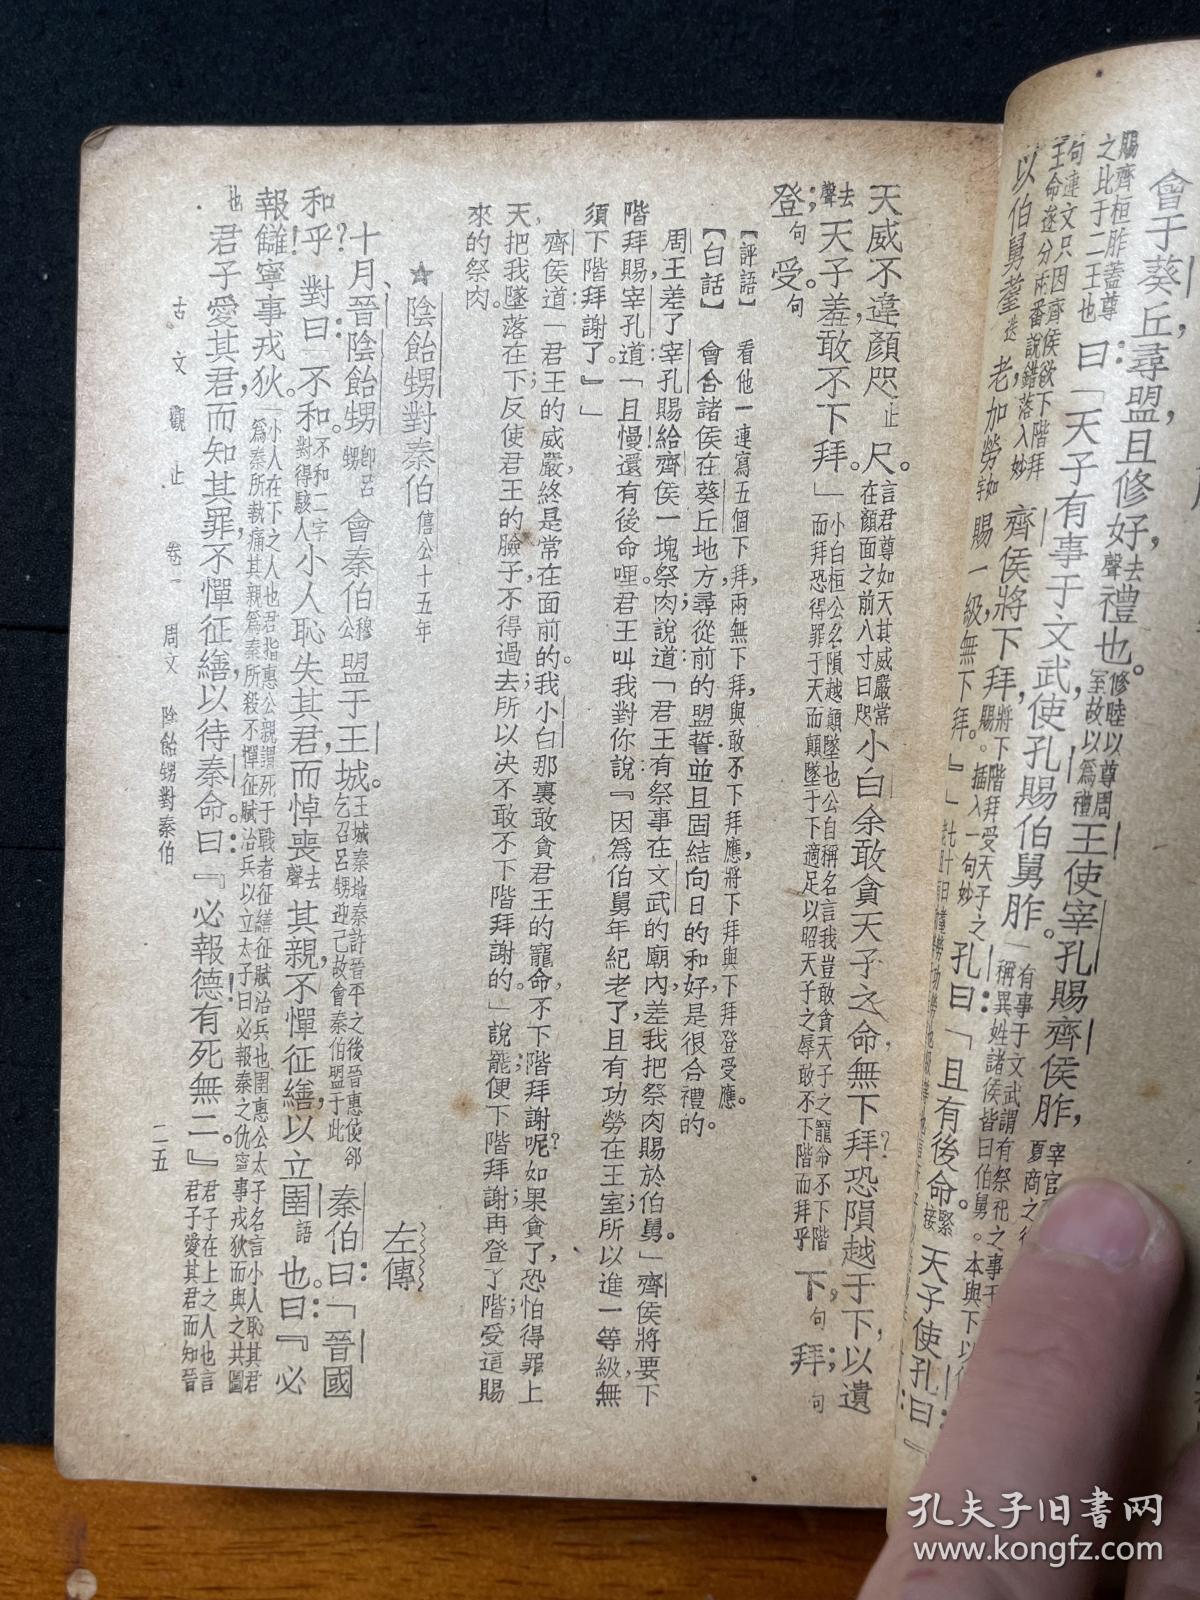 會于葵丘，尋盟，且修好，去聲禮也。修睦以尊周室故以爲禮王使宰孔賜齊侯胙，宰官
賜齊桓胙蓋尊之比于二王也曰：「天子有事于文武，使孔賜伯舅胙。」有事于文武謂有祭祀之事
稱異姓諸侯皆曰伯舅。本與下以
句連文只因齊侯欲下階拜王命遂分兩番說錯落入妙齊侯將下拜，將下階拜受天子之賜。插入一句妙孔曰：「且有後命。緊接天子使孔曰：『
以伯舅耋迭老，加勞，賜一級，無下拜。』」七十曰耋
天威不違顏咫止尺。言君尊如天其威嚴常在顏面之前八寸曰咫小白余敢貪天子之命，無下拜？恐隕越于下，以遺
去聲天子羞，敢不下拜。」小白桓公名隕越顛墜也公自稱名言我豈敢貪天子之寵命不下階而拜恐得罪于天而顛墜于下適足以昭天子之辱敢不下階而拜乎下，句拜；句
登；句受。句
【評語】　看他一連寫五個下拜，兩無下拜，與敢不下拜應，將下拜與下拜登受應。
【白話】　會合諸侯在葵丘地方，尋從前的盟誓，並且固結向日的和好，是很合禮的。
周王差了宰孔賜給齊侯一塊祭肉，說道：「君王有祭事在文武的廟內，差我把祭肉賜於伯舅。」齊侯將要下
階拜賜，宰孔道：「且慢！還有後命哩。君王叫我對你說：『因爲伯舅年紀老了，且有功勞在王室，所以進一等級，無
須下階拜謝了。』」
齊侯道：「君王的威嚴，終是常在面前的。我小白那裏敢貪君王的寵命，不下階拜謝呢？如果貪了，恐怕得罪上
天，把我墜落在下，反使君王的臉子不得過去；所以決不敢不下階拜謝的。」說罷，便下階拜謝；再登了階，受這賜
來的祭肉。
★陰飴甥對秦伯僖公十五年　左傳
十月，晉陰飴甥卽呂甥會秦伯穆公盟于王城。王城秦地秦許晉平之後晉惠使郤乞召呂甥迎己故會秦伯盟于此秦伯曰：「晉國
和乎？」對曰：「不和。不和二字對得駭人小人恥失其君，而悼喪去聲其親，不憚征繕，以立圉語也。曰：『必
報讎，寧事戎狄。』小人在下之人也君指惠公親謂死于戰者征繕征賦治兵也圉惠公太子名言小人恥其君爲秦所執痛其親爲秦所殺不憚征賦治兵以立太子曰必報秦之仇寧事戎狄而與之共圖
也君子愛其君，而知其罪，不憚征繕，以待秦命。曰：『必報德！有死無二。』君子在上之人也言君子愛其君而知晉
古文觀止　卷一　周文　陰飴甥對秦伯　二五
孔夫子旧书网
www.kongfz.com